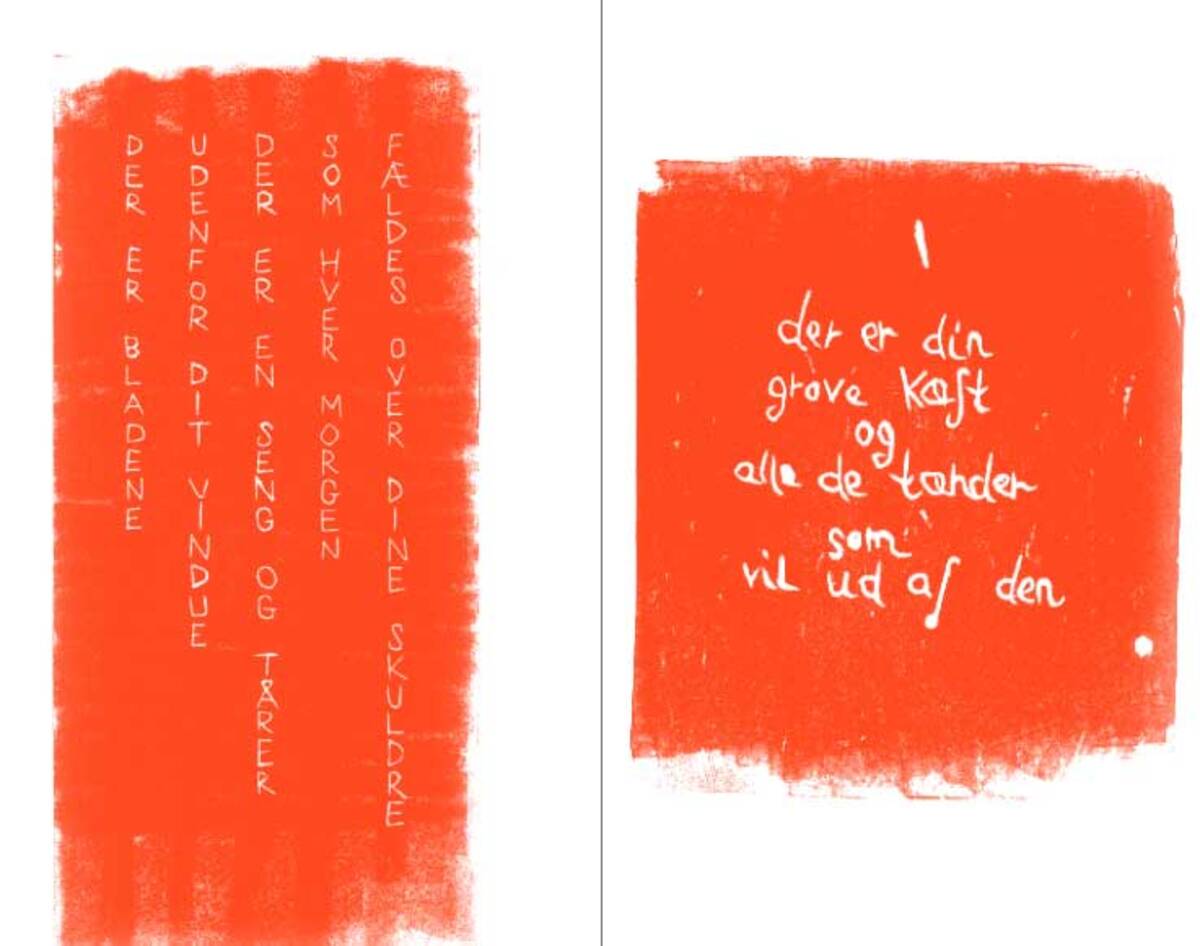 DER ER BLADENE
UDENFOR DIT VINDUE
DER ER EN SENG OG TÅRER
SOM HVER MORGEN
FÆLDES OVER DINE SKULDRE
der er din
grove kæft
og
alle de tænder
som
vil ud af den